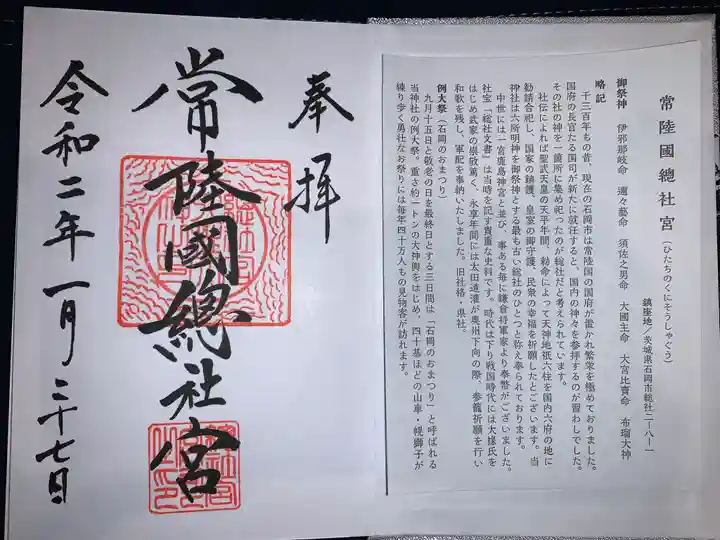 常陸國總社宮(ひたちのくにそうしゃぐう)
鎮座地/茨城県石岡市総社二-八-一
御祭神 伊邪那岐命 邇々藝命 須佐之男命 大國主命 大宮比賣命 布瑠大神
略記
千三百年もの昔、現在の石岡市は常陸国の国府が置かれ繁栄を極めておりました。
国府の長官たる国司が新たに就任すると、国内の神々を参拝するのが習わしでした。
その社の神を一箇所に集め祀ったのが総社だと考えられています。
社伝によれば聖武天皇の天平年間、勅命によって天神地祇六柱を国内六府の地に
勧請合祀し、国家の鎮護、皇室の御守護、民衆の幸福を祈願したとございます。当
神社は六所明神を御祭神とする最も古い総社のひとつと弥え奉られております。
中世には一宮鹿島神宮と並び、事ある毎に鎌倉将軍家より奉幣がございました。
社宝「総社文書」は当時を記す貴重な史料です。時代は下り戦国時代には大掾氏を
はじめ武家の崇敬篤く、永享年間には太田道灌が奥州下向の際、参籠祈願を行い
和歌を残し、軍配を奉納いたしました。旧社格・県社。
例大祭(石岡のおまつり)
九月十五日と敬老の日を最終日とする三日間は「石岡のおまつり」と呼ばれる
当神社の例大祭。重さ約一トンの大神輿をはじめ、四十基ほどの山車・幌獅子が
練り歩く勇壮なお祭りには毎年四十万人もの見物客が訪れます。
奉拝
常陸國總社宮
令和二年一月二十七日